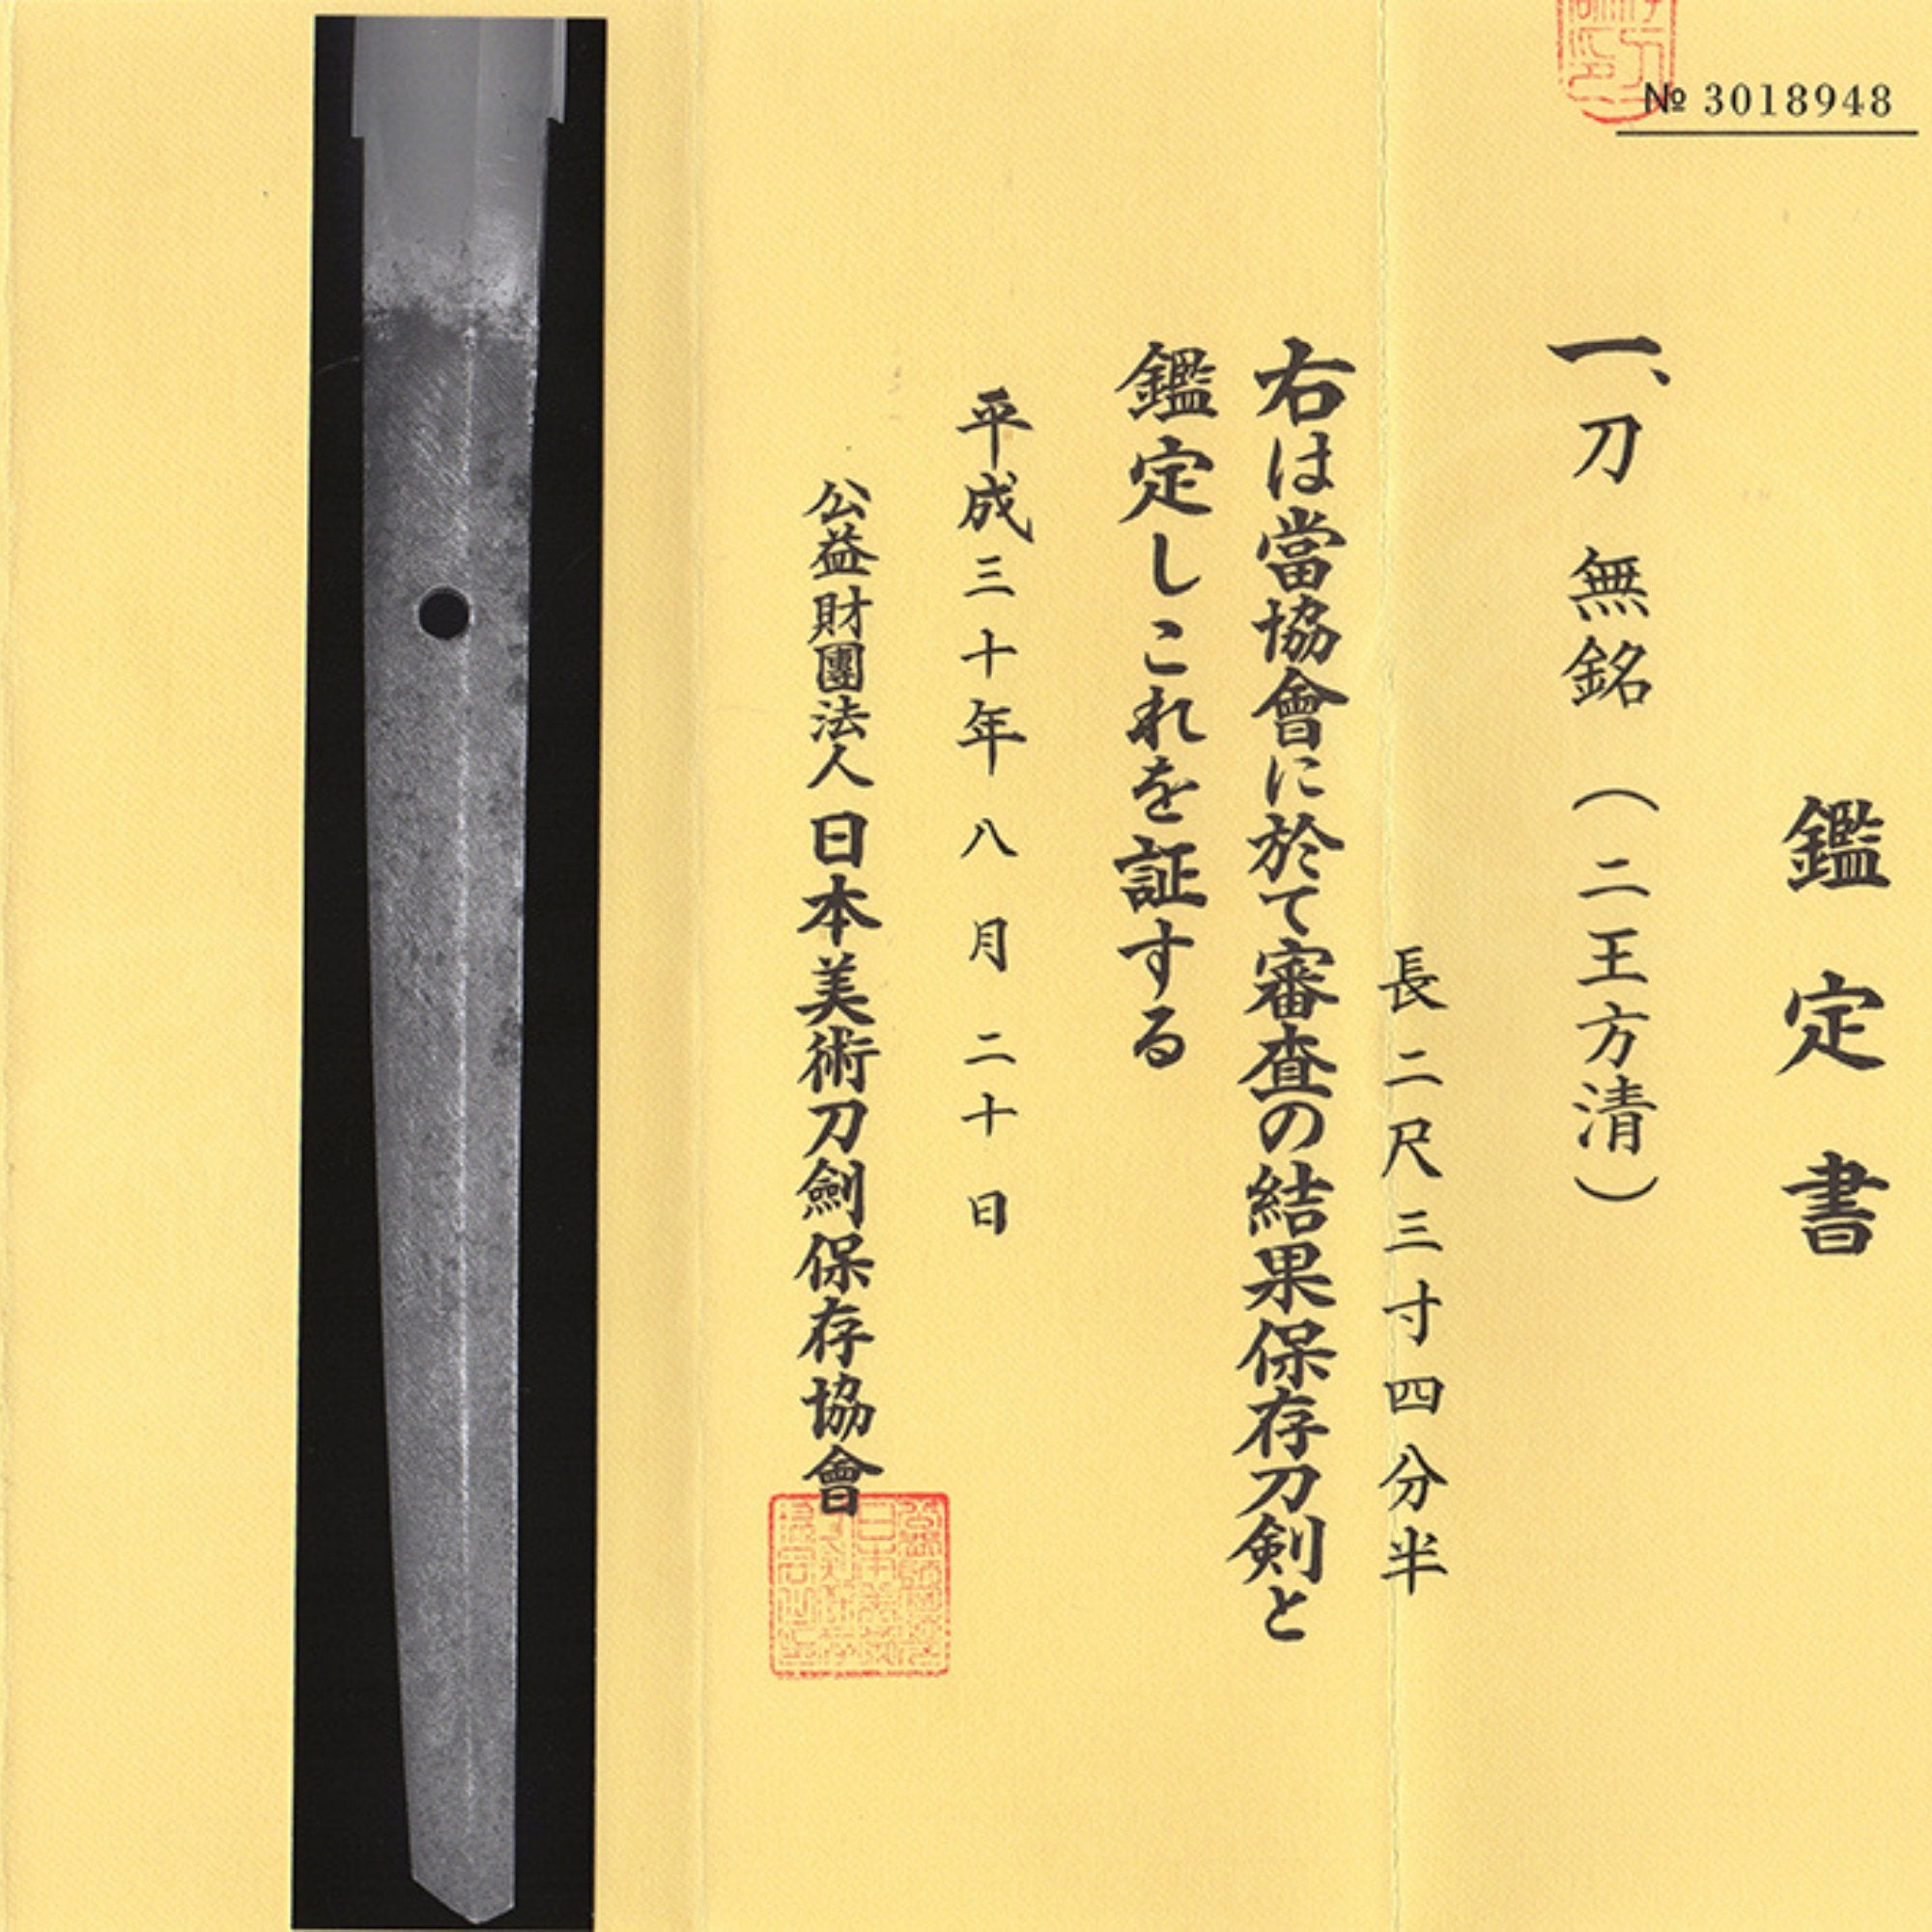 № 3018948
鑑定書
一、刀 無銘(二王方清)
長二尺三寸四分半
右は當協會に於て審査の結果保存刀剣と
鑑定しこれを証する
平成三十年八月二十日
公益財團法人日本美術刀劍保存協會